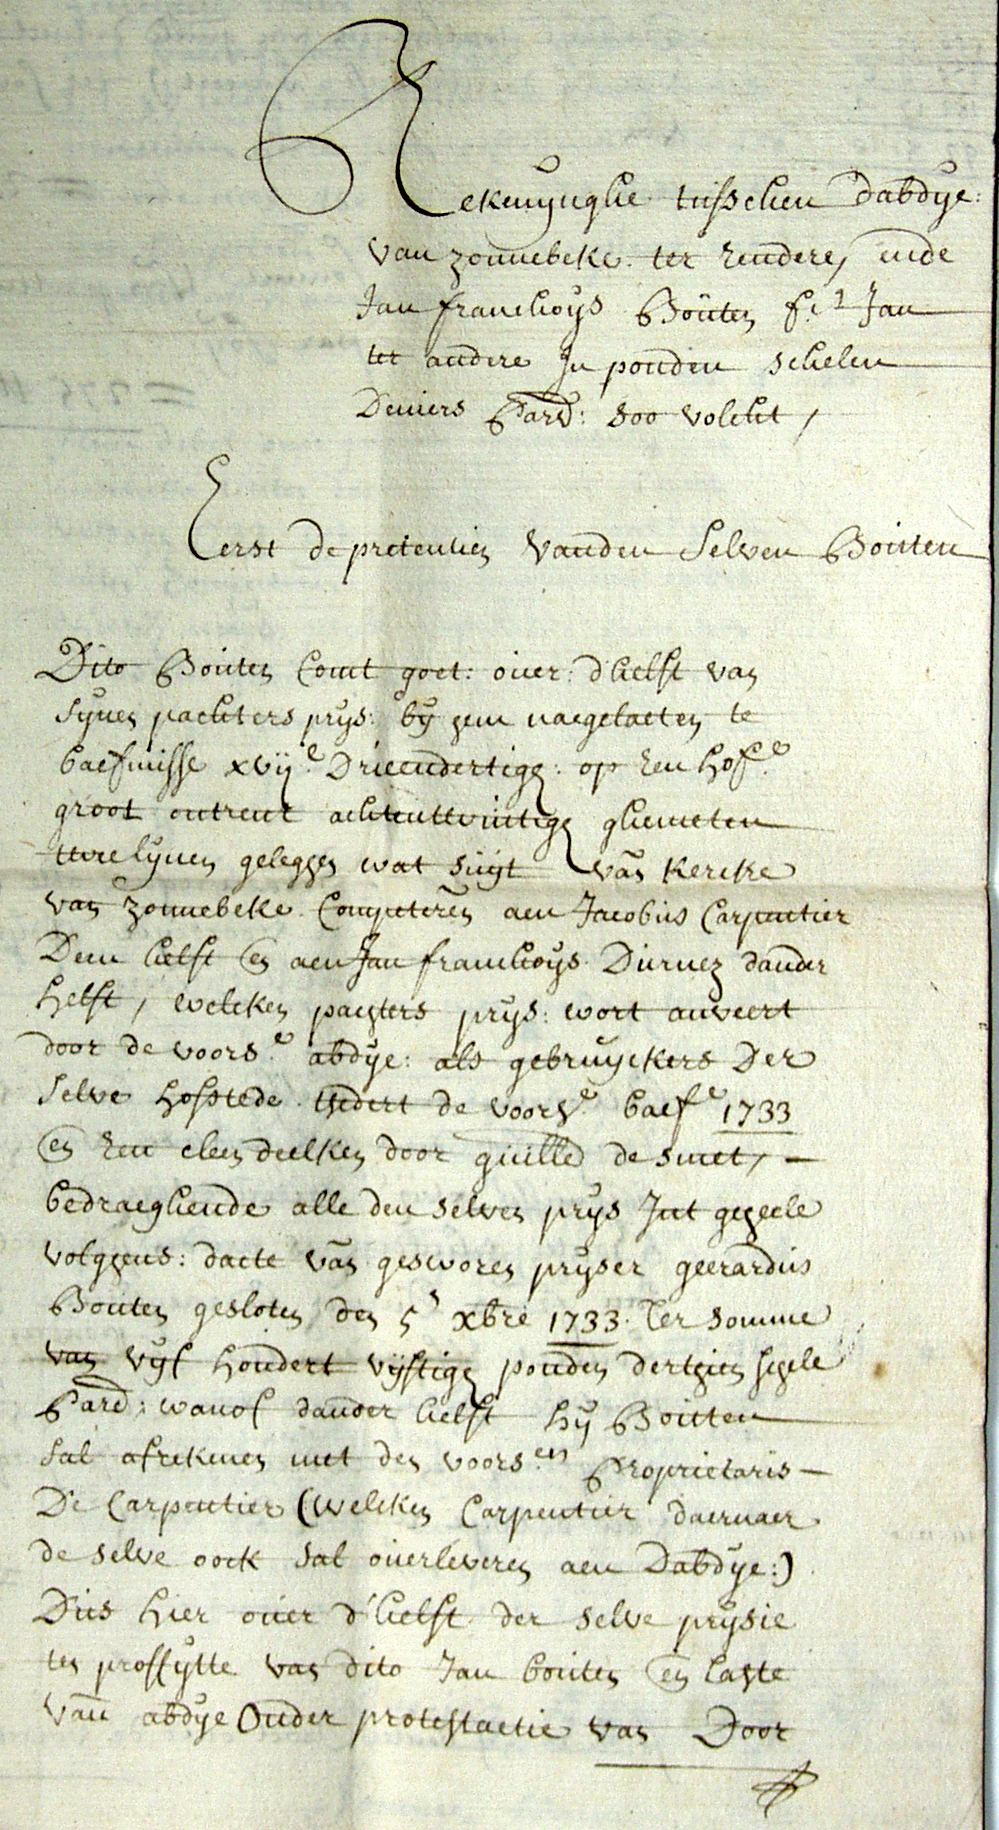 Rekenynghe tusschen Dabdye:
van zonnebeke ter eender, ende
Jan franchoys Bouten f.s Jan
ter andere In ponden schelen
Deniers Pard: soo volcht,
Eerst de pretentien vanden selven Bouten
Dito Bouten Comt goet: over: d'helft van
synen pachters prys: by hem naegelaeten te
baefmisse xvij.e Drieendertigh: op een hof.e
groot ontrent achtenttwintigh ghemeten
twee lynen geleghen wat suyt van kercke
van zonnebeke Competeren aen Jacobus Carpentier
Deen helft en aen Jan franchoys Durnez dander
helft, welcken pachters prys: wort anveert
door de voors.e abdye: als gebruyckers Der
selve hofstede tsedert de voors.e baef.e 1733
en een cleen deelken door guille de smet,
bedraeghende alle den selven prys Int geheele
volghens: dacte van gesworen pryser geerardus
Bouten gesloten den 5.n xbre 1733. Ter somme
van vyf hondert vyftigh ponden derthien schele
Pard: wanof dander helft hy Boutten
sal afrekenen met den voors.en Proprietaris
De Carpentier (welcken Carpentier daernaer
de selve oock sal overleveren aen Dabdye:)
Dus hier over d'helft der selve prysie
ten proffytte van dito Jan bouten en laste
van abdye Onder protestaetie van Door